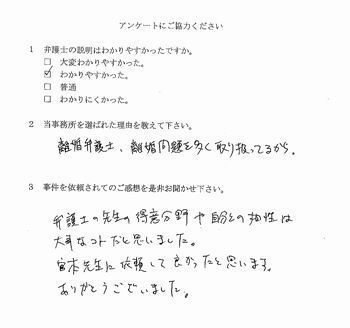 アンケートにご協力ください
1 弁護士の説明はわかりやすかったですか。
□ 大変わかりやすかった。
☑ わかりやすかった。
□ 普通
□ わかりにくかった。
2 当事務所を選ばれた理由を教えて下さい。
離婚弁護士、離婚問題を多く取り扱ってるから。
3 事件を依頼されてのご感想を是非お聞かせ下さい。
弁護士の先生の得意分野や自分との相性は
大事なコトだと思いました。
宮本先生に依頼して良かったと思います。
ありがとうございました。